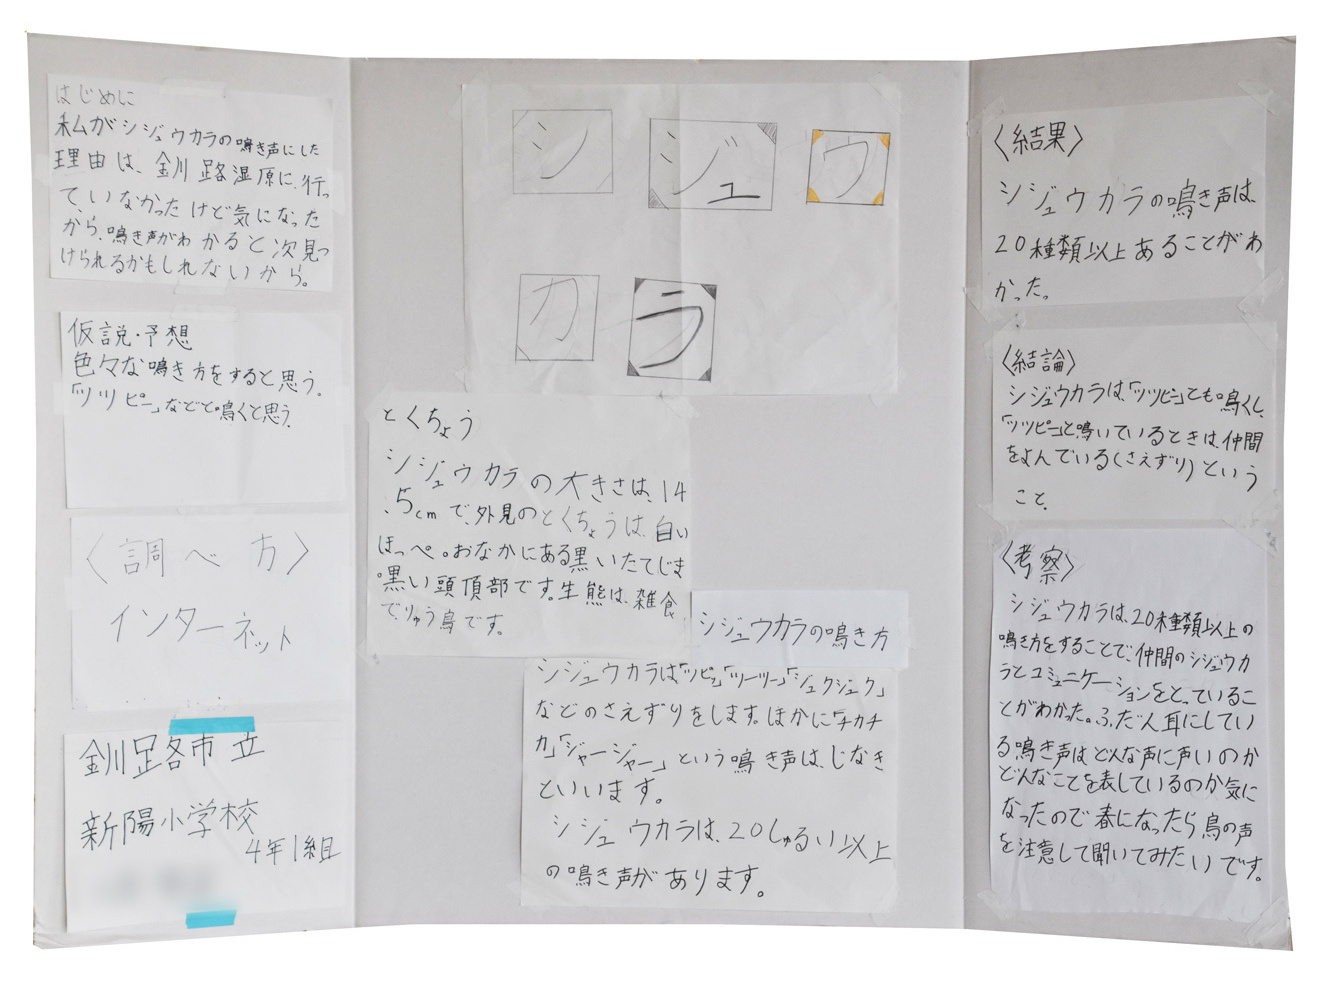 はじめに
私がシジュウカラの鳴き声にした
理由は、釧路湿原に、行っ
て、いなかったけど気になった
から、鳴き声がわかると次見つ
けられるかもしれないから。
仮説・予想
色々な鳴き方をすると思う。
「ツツピー」などと鳴くと思う。
〈調べ方〉
インターネット
釧路市立
新陽小学校
4年1組
シジュウ
カラ
とくちょう
シジュウカラの大きさは、14
.5cmで、外見のとくちょうは、白い
ほっぺ。おなかにある黒いたてじま
。黒い頭頂部です。生態は、雑食
で、りゅう鳥です。
シジュウカラの鳴き方
シジュウカラは「ツピッ」「ツーツー」「ジュクジュク」
などのさえずりをします。ほかに「チカチ
カ」「ジャージャー」という鳴き声は、じなき
といいます。
シジュウカラは、20しゅるい以上
の鳴き声があります。
〈結果〉
シジュウカラの鳴き声は、
20種類以上あることがわ
かった。
〈結論〉
シジュウカラは、「ツツピー」とも鳴くし、
「ツツピー」と鳴いているときは、仲間
をよんでいる(さえずり)という
こと。
〈考察〉
シジュウカラは、20種類以上の
鳴き方をすることで、仲間のシジュウカ
ラとコミュニケーションをとっているこ
とがわかった。ふだん耳にしてい
る鳴き声はどんな声に声いのか
どんなことを表しているのか気に
なったので春になったら鳥の声
を注意して聞いてみたいです。